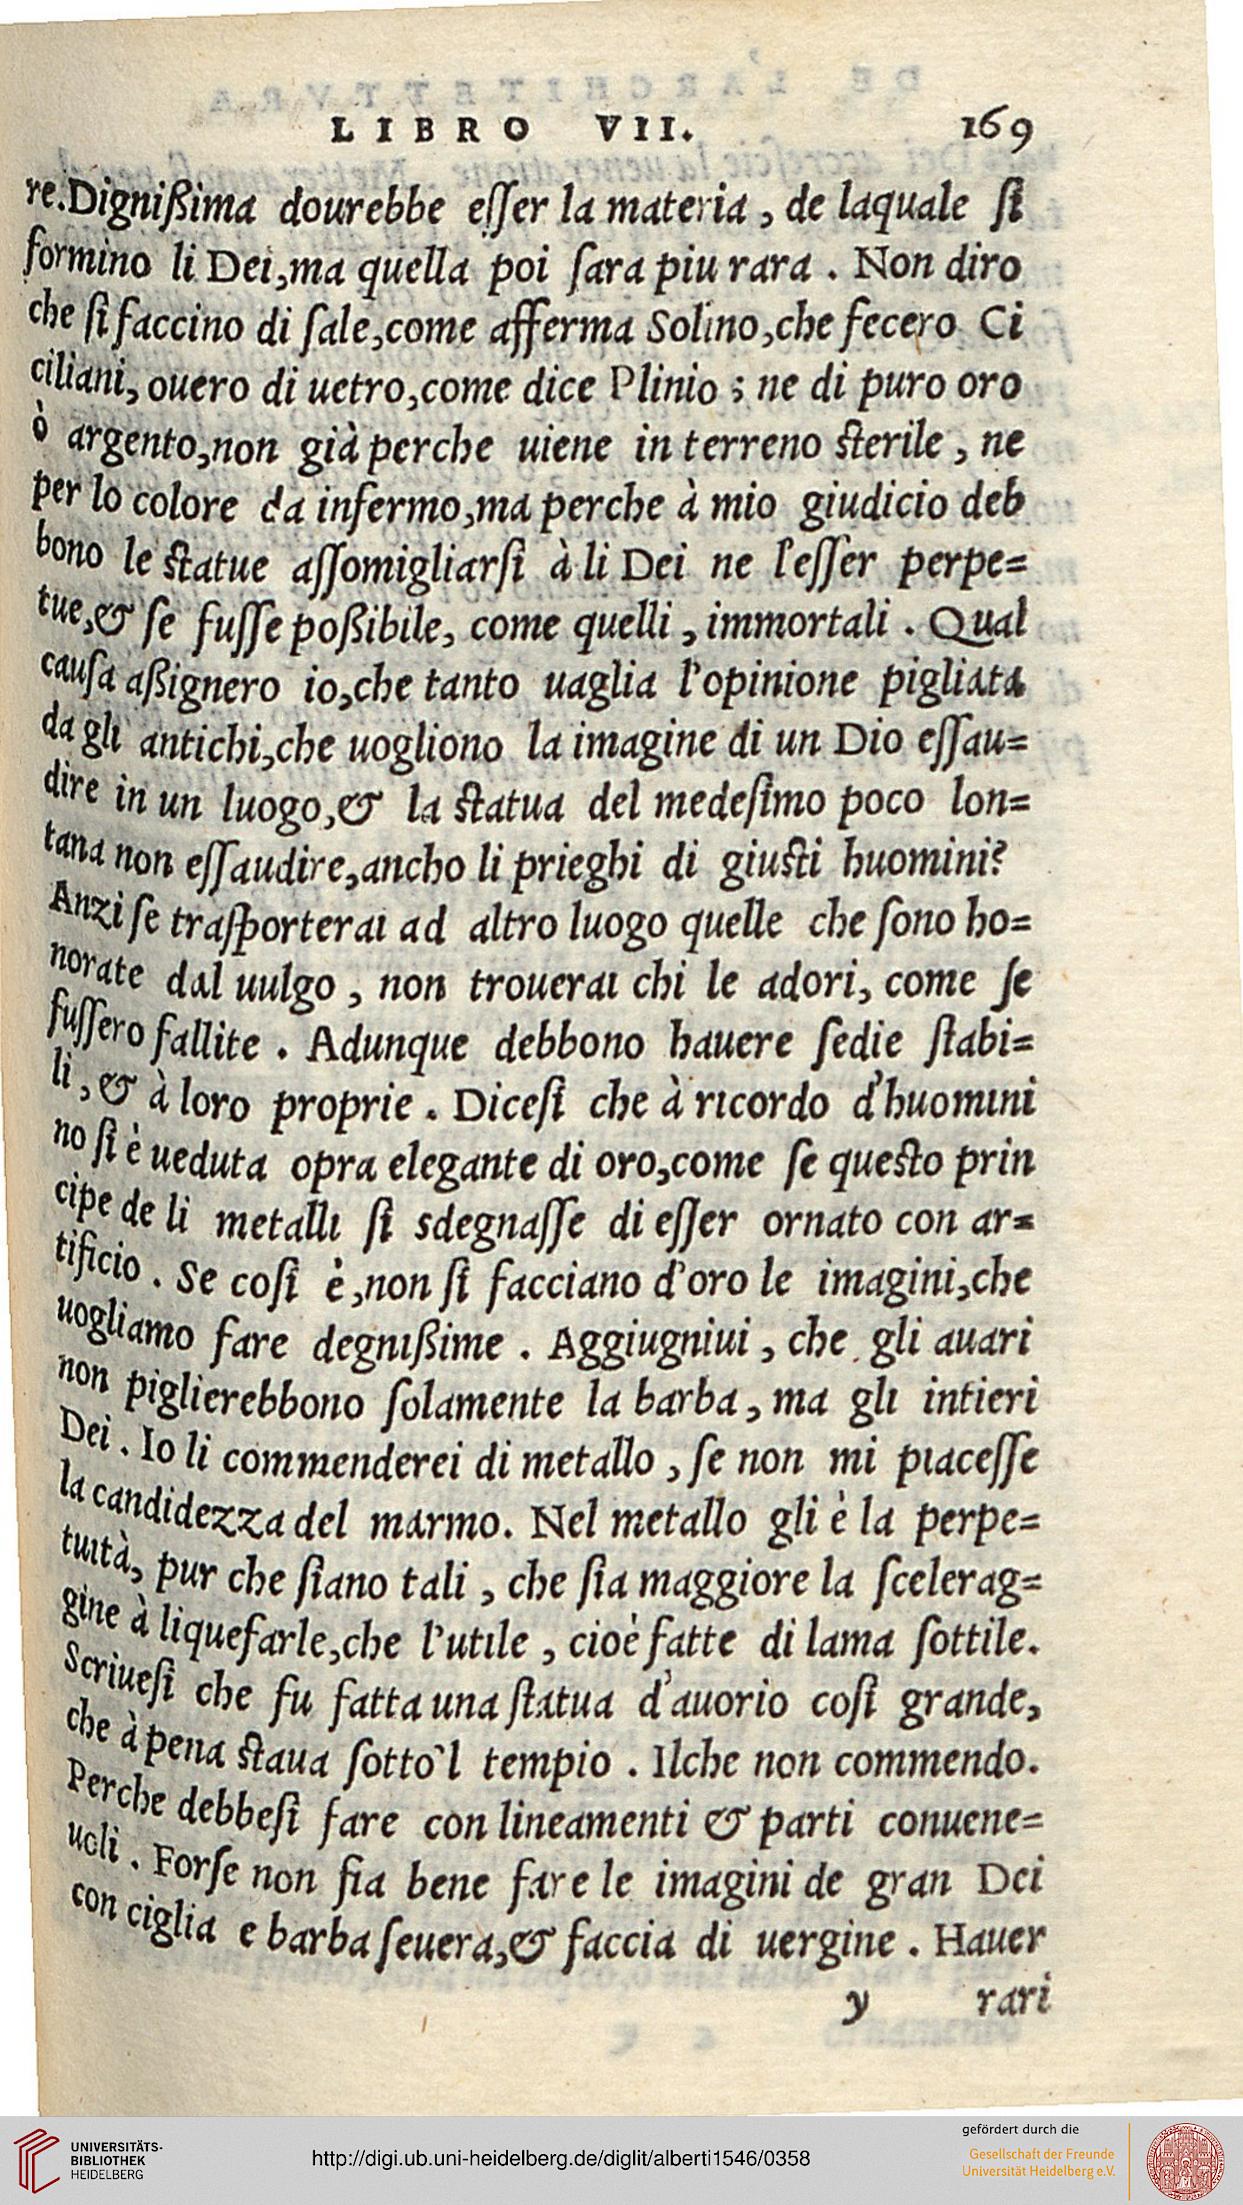 LIBRO VII. 169
re. Dignißima dourebbe eſſer la materia, de laquale ſi
formino li Dei, ma quella poi ſara piu rara. Non diro
che ſi faccino di ſale, come afferma Solino, che fecero Ci
ciliani, ouero di uetro, come dice Plinio; ne di puro oro
ò argento, non già perche uiene in terreno ſterile, ne
per lo colore da infermo, ma perche à mio giudicio deb
bono le ſtatue aſſomigliarſi à li Dei ne l'eſſer perpe=
tue, & ſe fuſſe poßibile, come quelli, immortali. Qual
cauſa aßignero io, che tanto uaglia l'opinione pigliata
da gli antichi, che uogliono la imagine di un Dio eſſau=
dire in un luogo, & la ſtatua del medeſimo poco lon=
tana non eſſaudire, ancho li prieghi di giuſti huomini?
Anzi ſe traſporterai ad altro luogo quelle che ſono ho=
norate dal uulgo, non trouerai chi le adori, come ſe
fuſſero fallite. Adunque debbono hauere ſedie ſtabi=
li, & à loro proprie. Diceſi che à ricordo d'huomini
no ſi è ueduta opra elegante di oro, come ſe queſto prin
cipe de li metalli ſi sdegnaſſe di eſſer ornato con ar=
tificio. Se coſi è, non ſi facciano d'oro le imagini, che
uogliamo fare degnißime. Aggiugniui, che gli auari
non piglierebbono ſolamente la barba, ma gli intieri
Dei. Io li commenderei di metallo, ſe non mi piaceſſe
la candidezza del marmo. Nel metallo gli è la perpe=
tuità, pur che ſiano tali, che ſia maggiore la ſcelerag=
gine à liquefarle, che l'utile, cioè fatte di lama ſottile.
Scriueſi che fu fatta una ſtatua d'auorio coſi grande,
che à pena ſtaua ſotto'l tempio. Ilche non commendo.
Perche debbeſi fare con lineamenti & parti conuene=
uoli. Forſe non fia bene fare le imagini de gran Dei
con ciglia e barba ſeuera, & faccia di uergine. Hauer
y rari
UNIVERSITÄTS-
BIBLIOTHEK
HEIDELBERG
http://digi.ub.uni-heidelberg.de/diglit/alberti1546/0358
gefördert durch die
Gesellschaft der Freunde
Universität Heidelberg e.V.